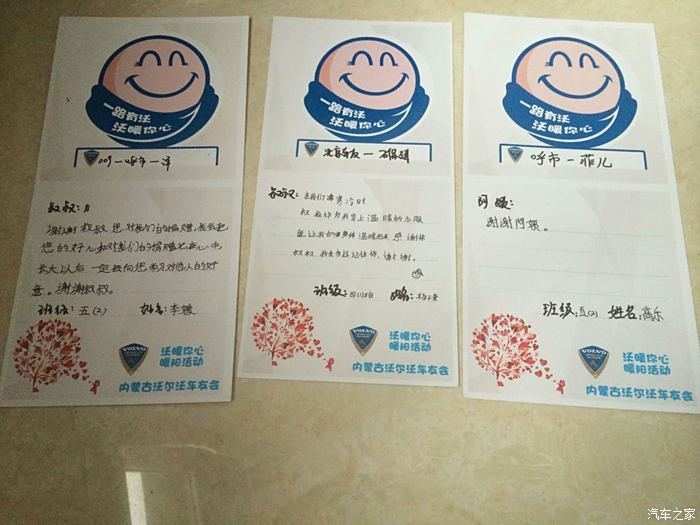 一路有沃
沃暖你心
009-呼市-洋
叔叔:
谢谢叔叔您对我们的捐赠,我会把
您的好心和对我们的捐赠记在心中
长大以后一定要向您学习对他人的好
意。谢谢叔叔。
班级:五(2) 姓名:李媛
VOLVO
沃暖你心
暖阳活动
内蒙古沃尔沃车友会
一路有沃
沃暖你心
北京车友-
叔叔:在我们寒冷时
叔叔你为我穿上温暖的衣服
能让我们的身体温暖起来 感谢你
叔叔 我会永远记住你,谢谢。
班级: 姓名:
VOLVO
沃暖你心
暖阳活动
内蒙古沃尔沃车友会
一路有沃
沃暖你心
呼市-菲儿
阿姨:
谢谢阿姨。
班级:五(2) 姓名:高乐
VOLVO
沃暖你心
暖阳活动
内蒙古沃尔沃车友会
汽车之家